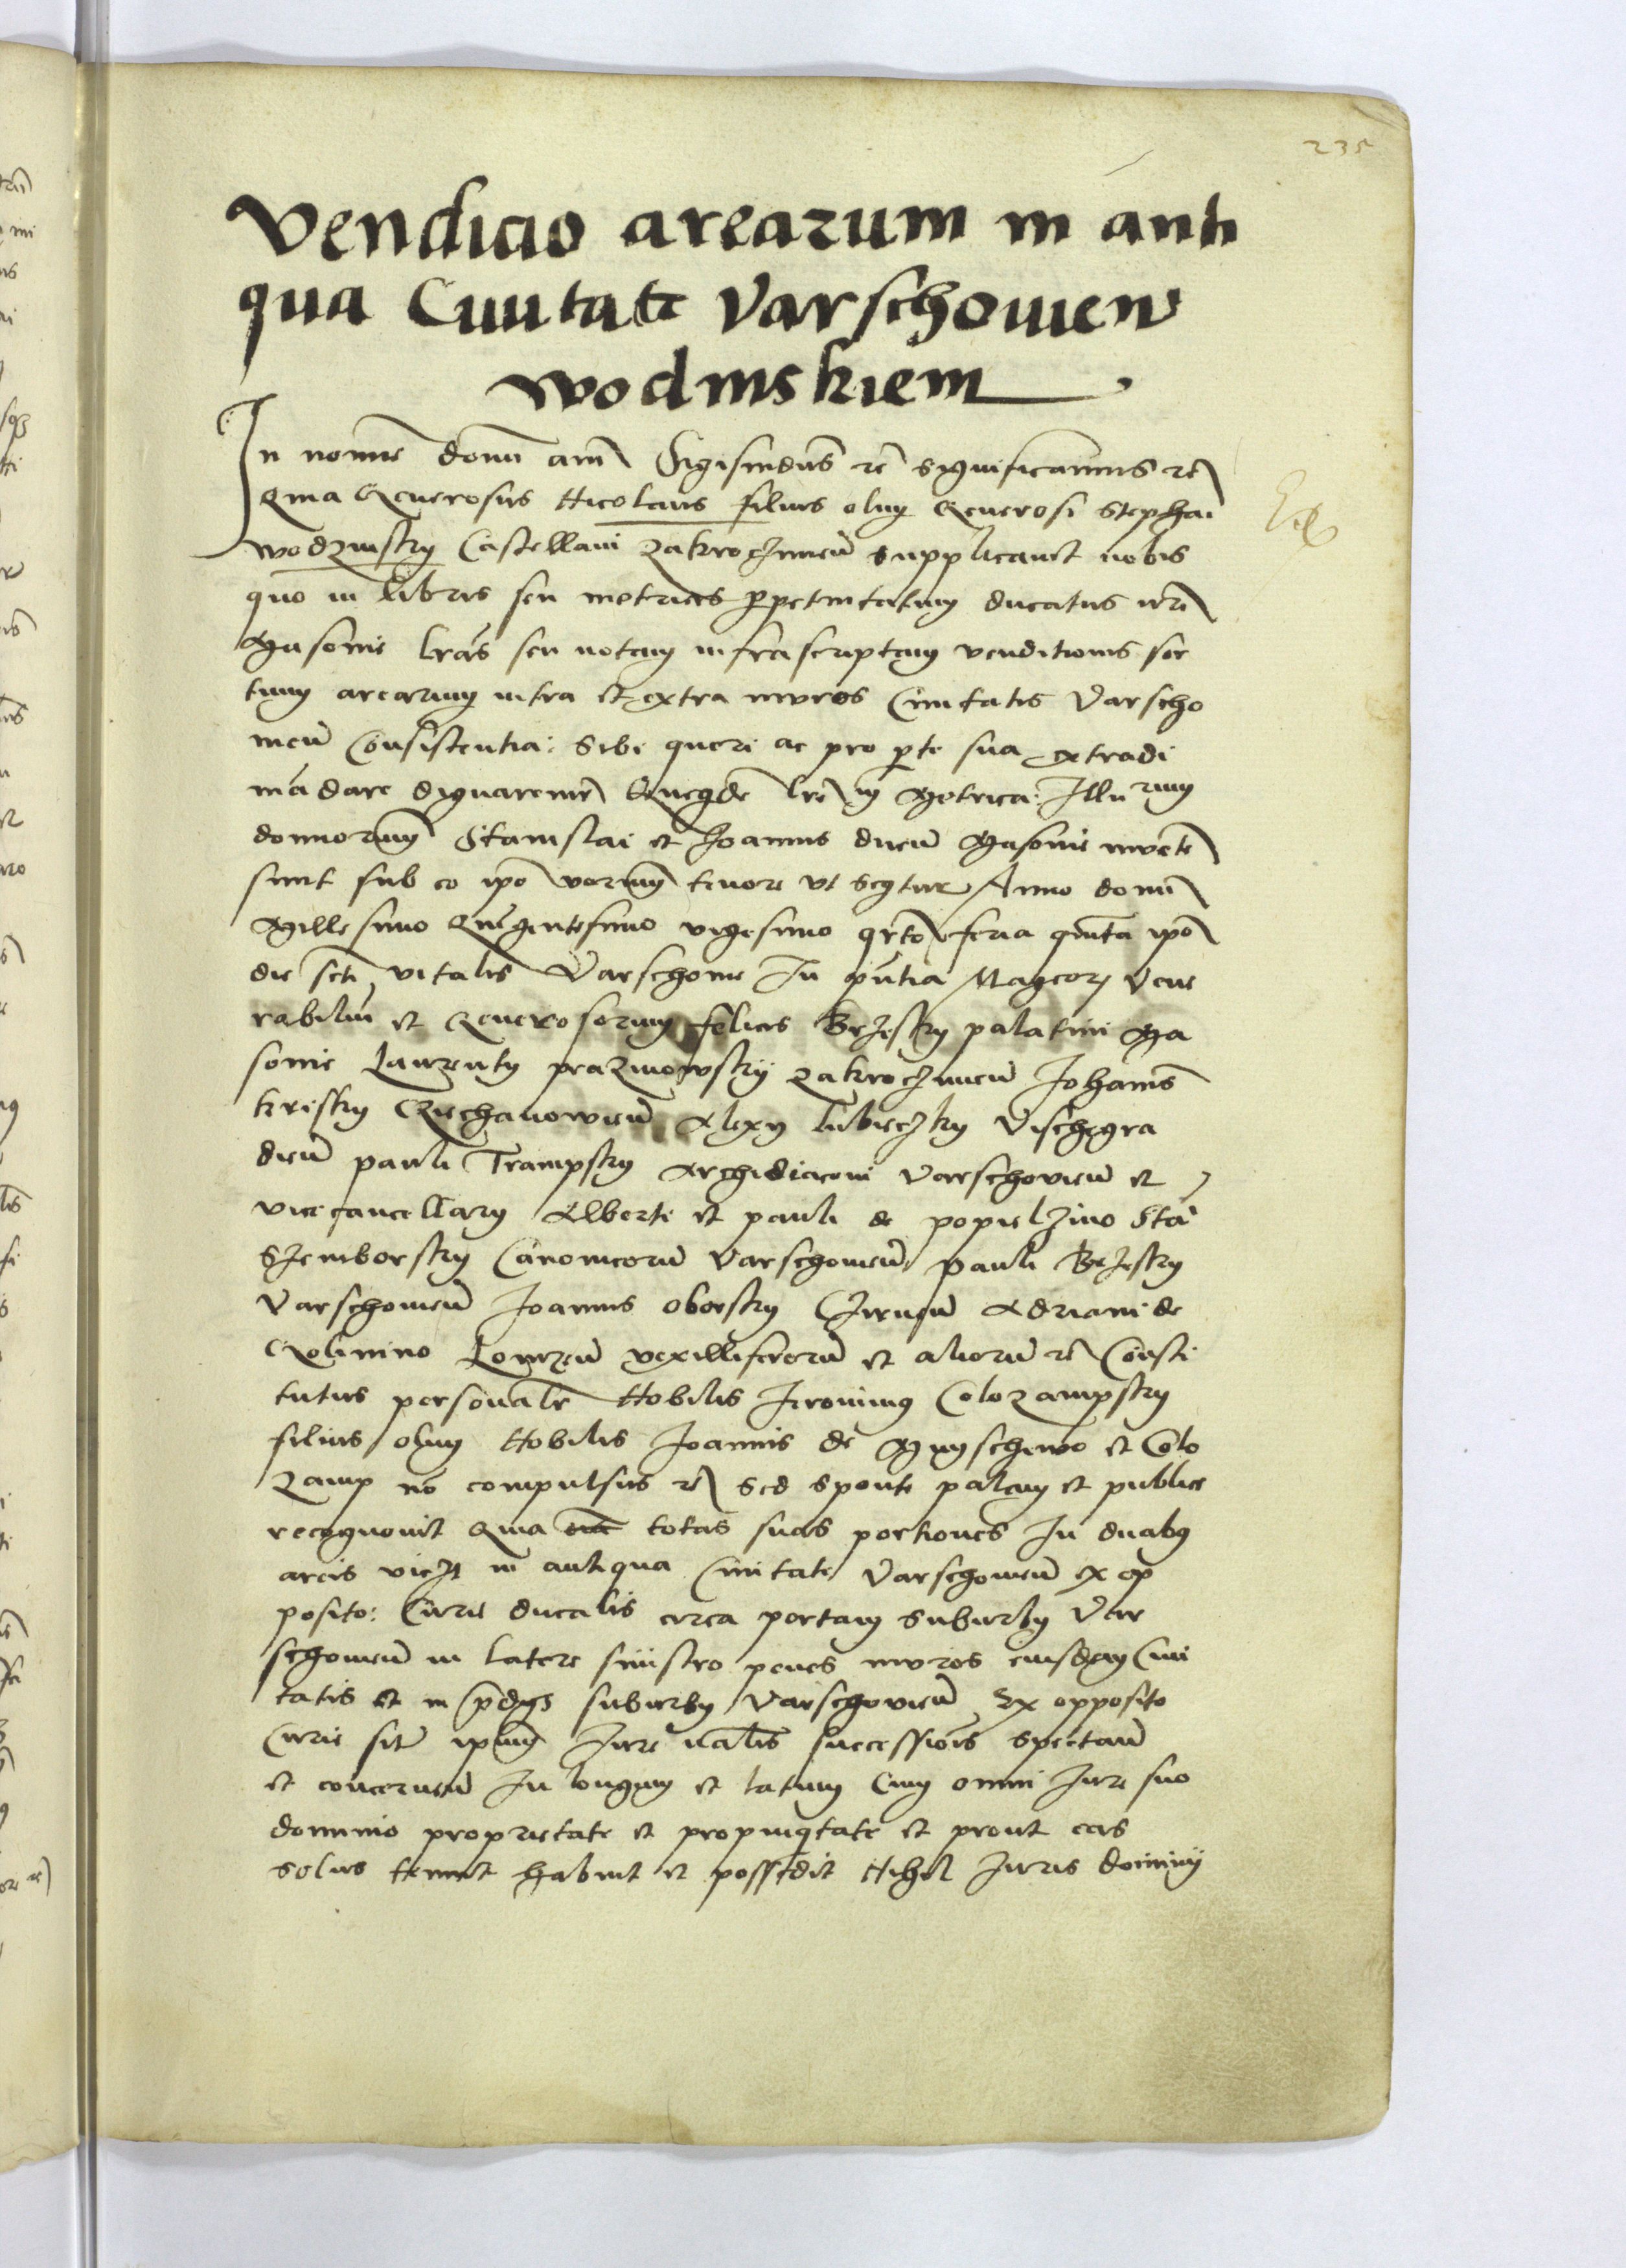 235
Vendicio arearum in anti
qua Civitate Varschovien
Wodinskiem
In nomine domini amen Sigismundus etc significamus etc
Quia Generosus Nicolaus filius olim Generosi Stephani
Wodzinsky Castellani Zakroczimien supplicavit nobis
quo in libris seu metrices perpetuitatum ducatus nostri
Masovie lras seu notam infrascriptam venditionis sor
tium arearum intra et extra muros Civitatis Varscho
vien Consistentia: Sibi queri ac pro parte sua extradi
mandare dignaremur lre in Metrica: Illu rum
dominorum Stanislai et Joannis ducum Masovie invente
sunt sub eo ipo verum tenore ut sequitur Anno domini
Millesimo Quingentesimo vigesimo qrto feria quinta ipo
die scti vitalis Varschovie In pntia Magcorum Vene
rabilium et Generosorum felicis Brzesky palatini Ma
sovie Laurenty prazmowsky Zakroczimien Johannis
krisky Czechanowien Alexy lubieczky Vischegra
dien pauli Trampsky Archidiaconi Varschovien et
vicecancellary Alberti et pauli de popielzino Sta
Szemborsky Canonicorum Varschovien pauli Brzesky
Varschovien Joannis oborsky Czirnen Adriani de
Golimino Lomzen vexilliferorum et aliorum etc Consti
tutus personaliter Nobilis Jeronimus Colozampsky
filius olim Nobilis Joannis de Mnyschewo et Colo
zamp non compulsus etc sed sponte palam et publice
recognovit Quia totas suas portiones In duabus
areis vicz in antiqua Civitate Varschovien ex op
posito: Curie ducalis circa portam suburby Var
schovien in latere sinistro penes muros eiusdem Civi
tatis et in suburby Varschovien Ex opposito
Curie ipsum Jure nalis successionis spectan
et concernen In longum et latum Cum omni Jure suo
dominio proprietate et propinqtate et prout eas
solus tenuit habuit et possedit Nihil Juris dominy